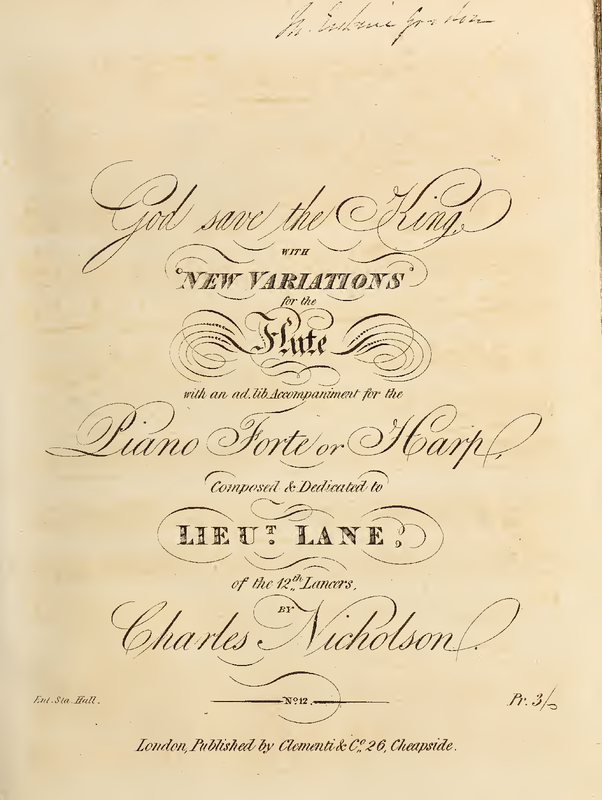 God save the King,
WITH
NEW VARIATIONS
for the
Flute
with an ad. lib. Accompaniment for the
Piano Forte or Harp,
Composed & Dedicated to
LIEUT. LANE,
of the 12th Lancers,
BY
Charles Nicholson.
Ent. Sta. Hall.
No. 12.
Pr. 3/
London, Published by Clementi & Co. 26, Cheapside.